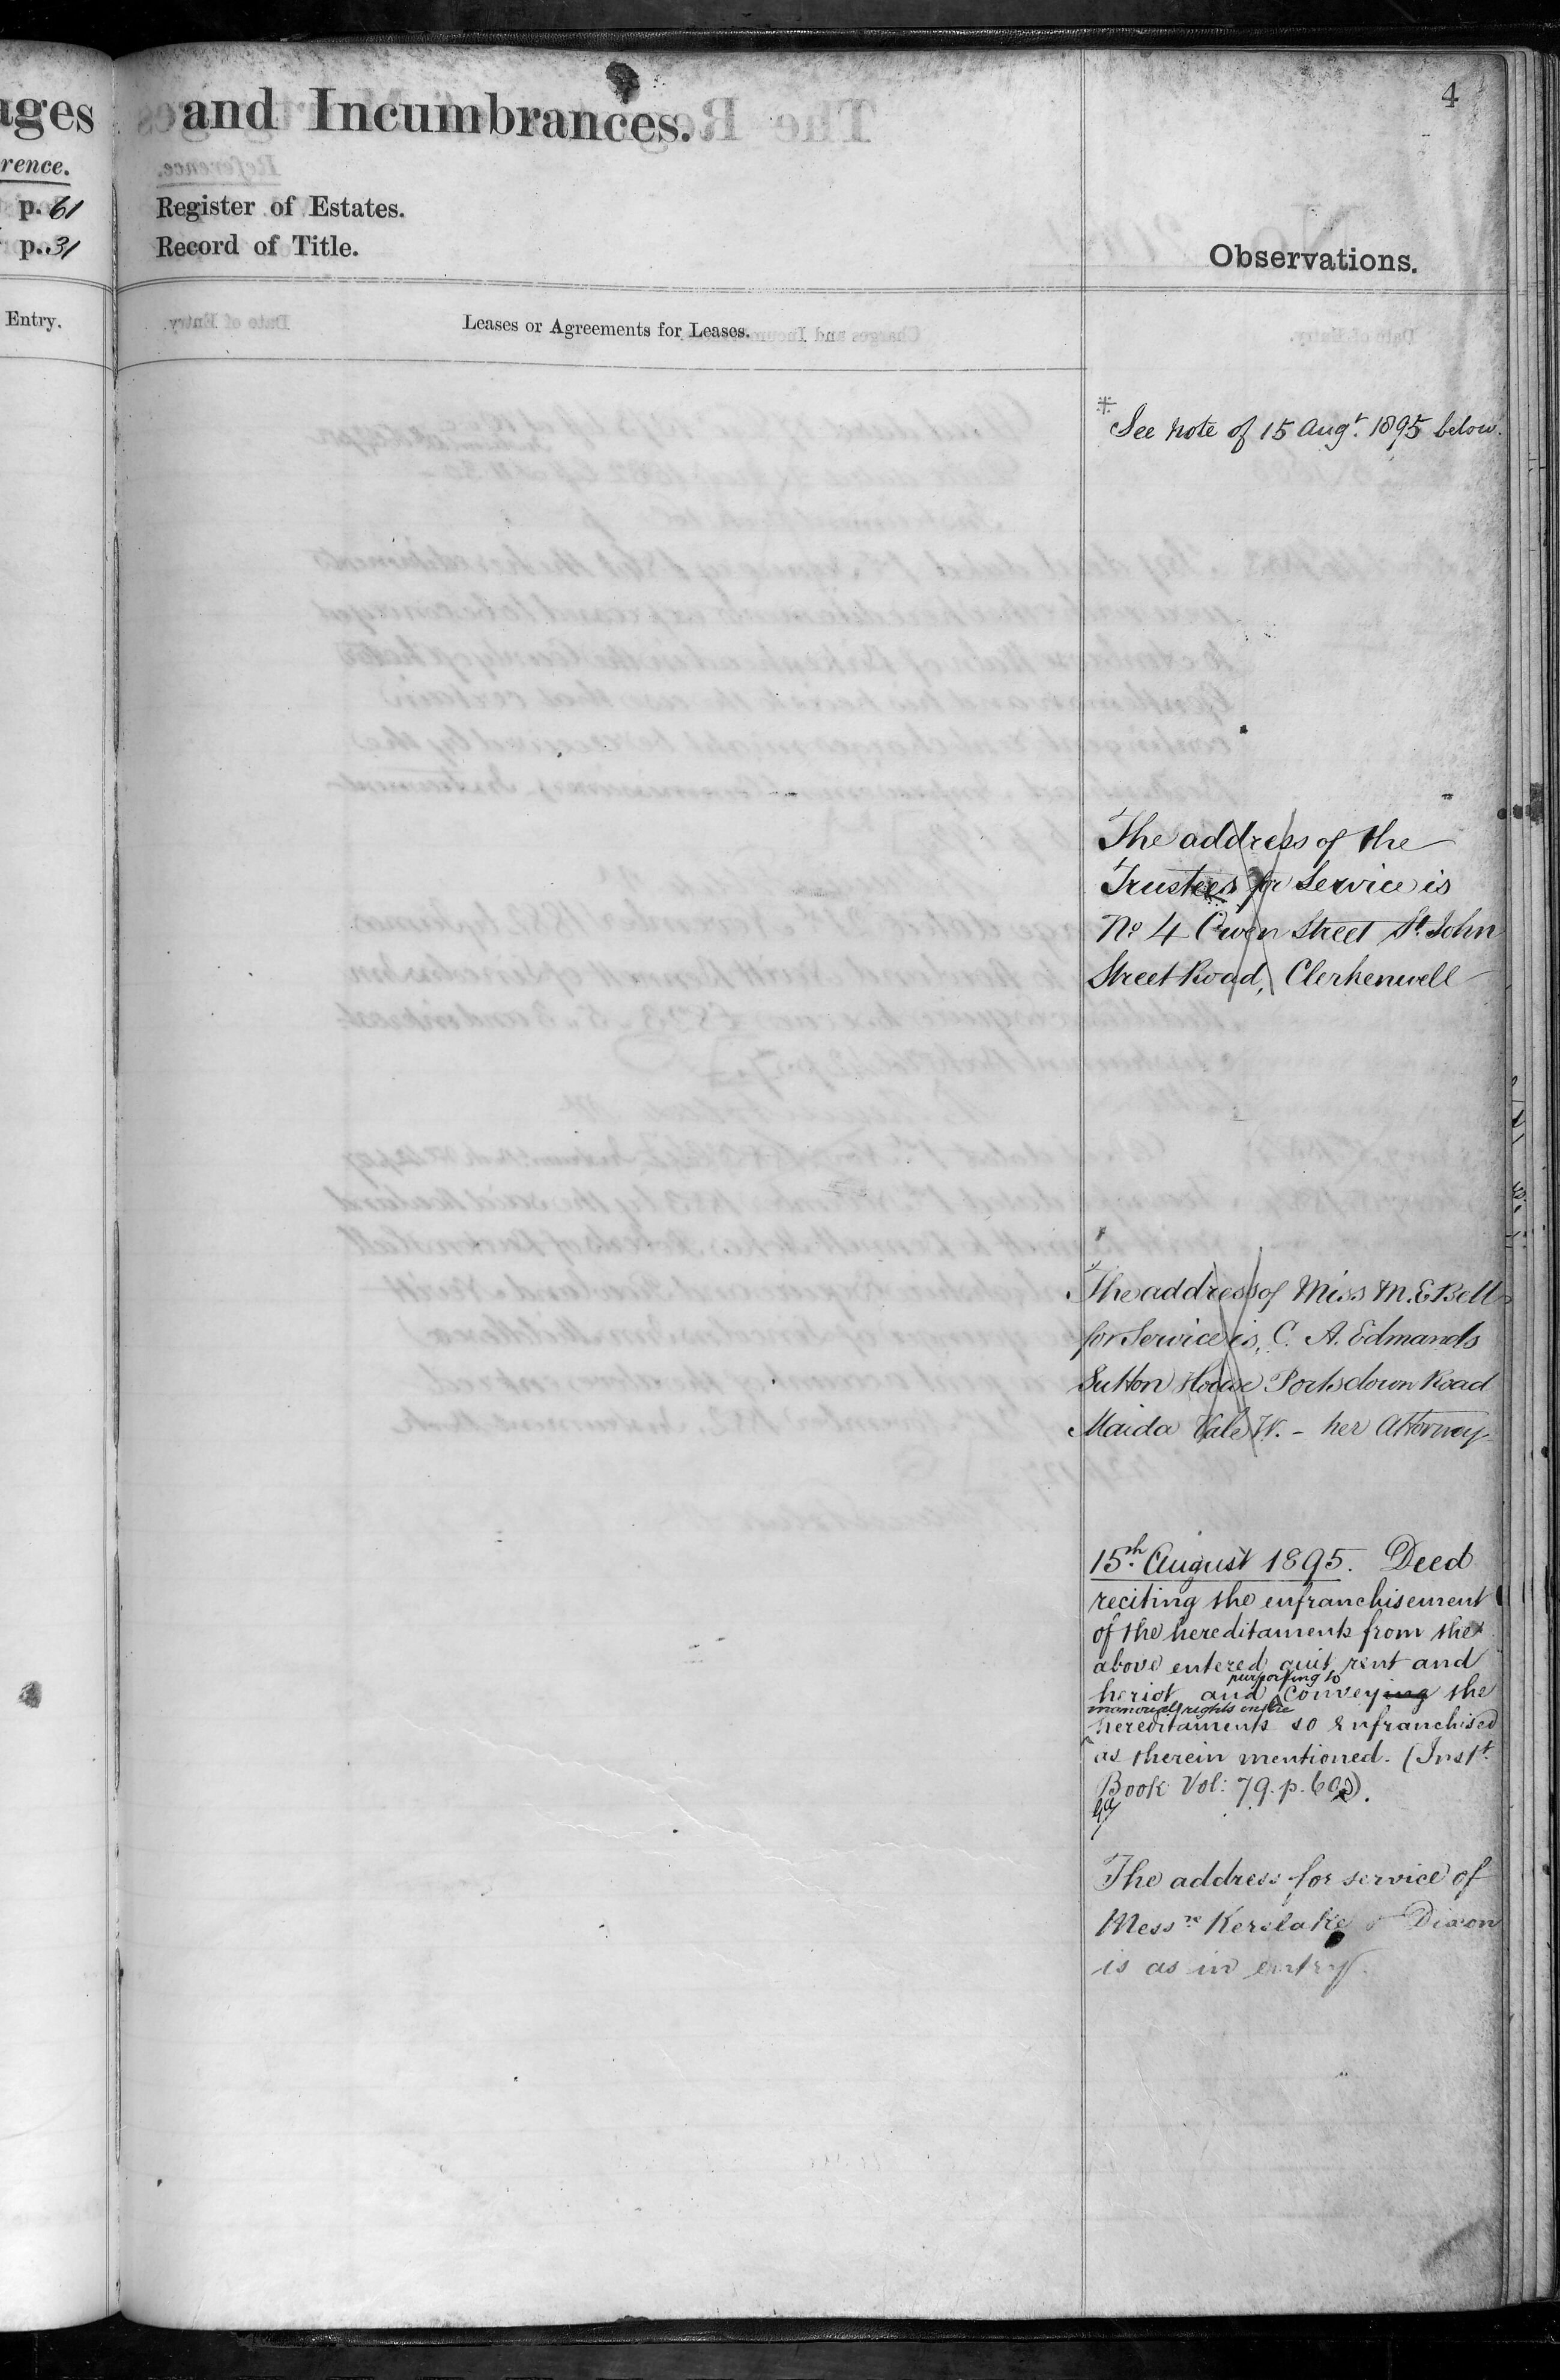 ages and Incumbrances.
4
rence.
p. 61 Register of Estates.
p. 31 Record of Title.
Observations.
Entry.
Leases or Agreements for Leases.
See note of 15 Augt. 1895 below.
The address of the
Trustees for Service is
No 4 Owen Street St. John
Street Road, Clerkenwell
The address of Miss M. E Bell
for Service is, C. A. Edmands
Sutton House Portsdown Road
Maida Vale W. - her Attorney
15th. August 1895. Deed
reciting the enfranchisement
of the hereditaments from the
above entered quit rent and
purporting to
heriot and conveying the
manorial rights in the
hereditaments so enfranchised
as therein mentioned. (Instt.
Book Vol: 79. p. 602).
The address for service of
Messrs Kerslake & Dixon
is as in entry.